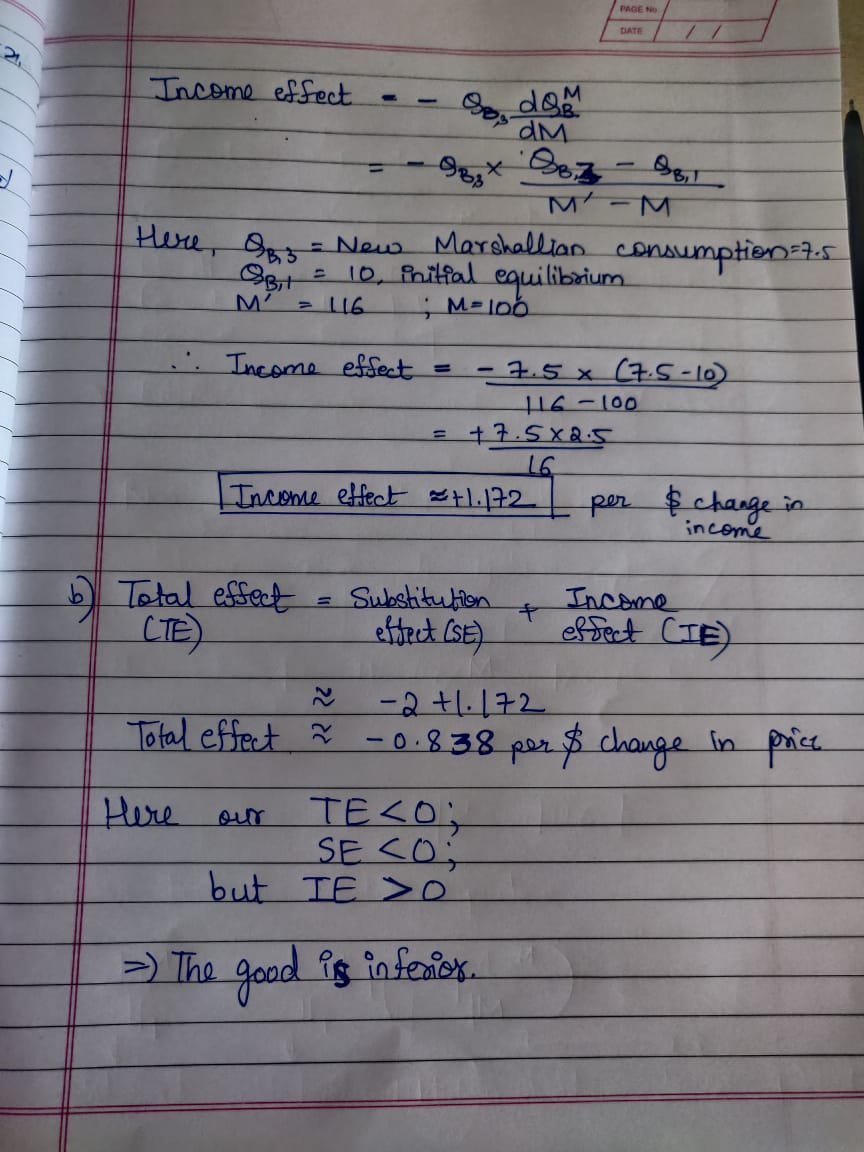 PAGE No.
DATE / /
Income effect = - Q_B,3 dQ_B^M
dM
= - Q_B,3 × Q_B,3 - Q_B,1
M' - M
Here, Q_B,3 = New Marshallian consumption=7.5
Q_B,1 = 10, initial equilibrium
M' = 116 ; M=100
∴ Income effect = - 7.5 × (7.5-10)
116-100
= +7.5×2.5
16
Income effect ≈+1.172 per $ change in
income
b) Total effect = Substitution + Income
(TE) effect (SE) effect (IE)
≈ -2 +1.172
Total effect ≈ -0.838 per $ change in price
Here our TE<0;
SE <0;
but IE >0
=) The good is inferior.